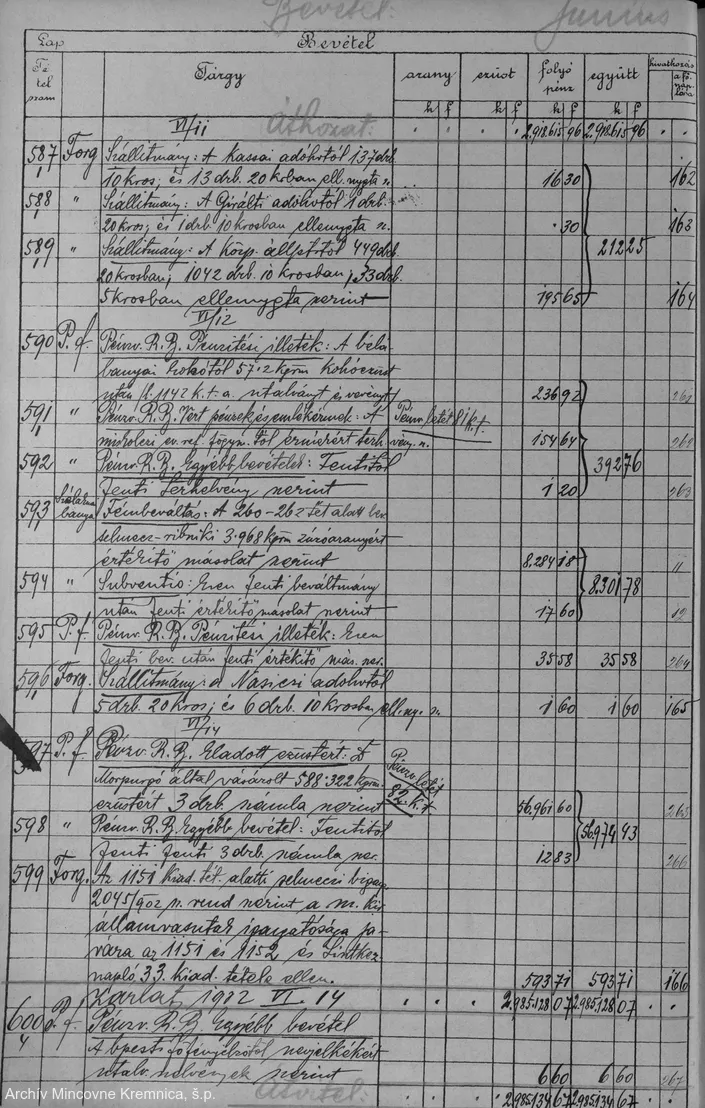 Bevétel: Junius
Lap Bevétel
Tétel szám Tárgy arany ezüst folyó pénz együtt hivatkozás a fő naplóra
k f k f k f k f
VI/11 Áthozat: 2,918.615 96 2,918.615 96
587 Forg Szállitmány: A Kassai adóhvtól 137 drb.
10 kros; és 13 drb. 20 krban ell. nygta sz. 16 30 162
588 " Szállitmány: A Giralti adóhvtól 1 drb.
20 kros; és 1 drb. 10 krosban ellennygta sz. 30 163
589 " Szállitmány: A Közp. állpttól 449 drb. 212 25
20 krosban, 1042 drb. 10 krosban, 33 drb.
5 krosban ellennygta szerint 195 65 164
VI/12
590 P. f. Pénzv. R. B. Pénzitési illeték: A béla-
bányai hokótól 57.2 kgrm kohóezüst
után fl. 1142 k. t. a. utalványt és 236 92
591 " Pénzv. R. B. Vert pénzek és emlékérmek: A Pénzv letét 81 k. t.
miskolci ev. ref. főgym. től érmekért 154 64
592 " Pénzv. R. B. Egyébb bevételek: Fentitől 392 76
Fenti szerint 1 20 263
593 bánya Fémbeváltás: A 260-262 tét alatt
selmecz- 3.968 kgrm
értéritő másolat szerint 8.284 18 11
594 " Subventio: Ezen fenti beváltmány 8.301 78
után fenti értéritő másolat szerint 17 60 12
595 P. f. Pénzv. R. B. Pénzitési illeték: Ezen
fenti bev. után fenti értékitő más. szer. 35 58 35 58 264
596 Forg. Szállitmány: a Nasiczi adóhvtól
5 drb. 20 kros; és 6 drb. 10 krosban ell. ny. sz. 1 60 1 60 165
VI/14
597 P. f. Pénzv. R. B. Eladott ezüstért: Pénzv letét 82 k. t.
Morpurgó által vásárolt 588.322 kgrm.
ezüstért 3 drb. számla szerint 56.961 60 265
598 " Pénzv. R. B. Egyébb bevétel: Fentitől 56.974 43
fenti fenti 3 drb. számla szer. 12 83 266
599 Forg. Az 1151 kiad. tét. alatti selmeczi
2045/902 p. rend szerint a m. kir
államvasutak igazgatósága ja-
vára az 1151 és 1152 és
napló 33. kiad. tétele ellen. 593 71 593 71 166
Zárlat 1902 VI. 14 2,985.128 07 2,985.128 07
600 P. f. Pénzv. R. B. Egyébb bevétel
A bpesti
szerint 6 60 6 60 267
Átvitel: 2,985.134 67 2,985.134 67
Archív Mincovne Kremnica, š.p.